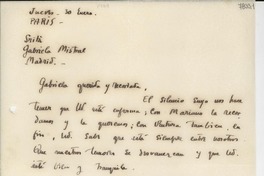 Jueves – 30 Enero.
PARIS –
Srita
Gabriela Mistral
Madrid. –
Gabriela querida y recordada,
El silencio suyo nos hace
temer que Ud. esté enferma; con Mariano la recor
damos y la queremos; con Ventura tambien, en
fin, Ud. sabe que está siempre entre nosotros
Que nuestros temores se desvanezcan y que Ud.
esté bien y tranquila.